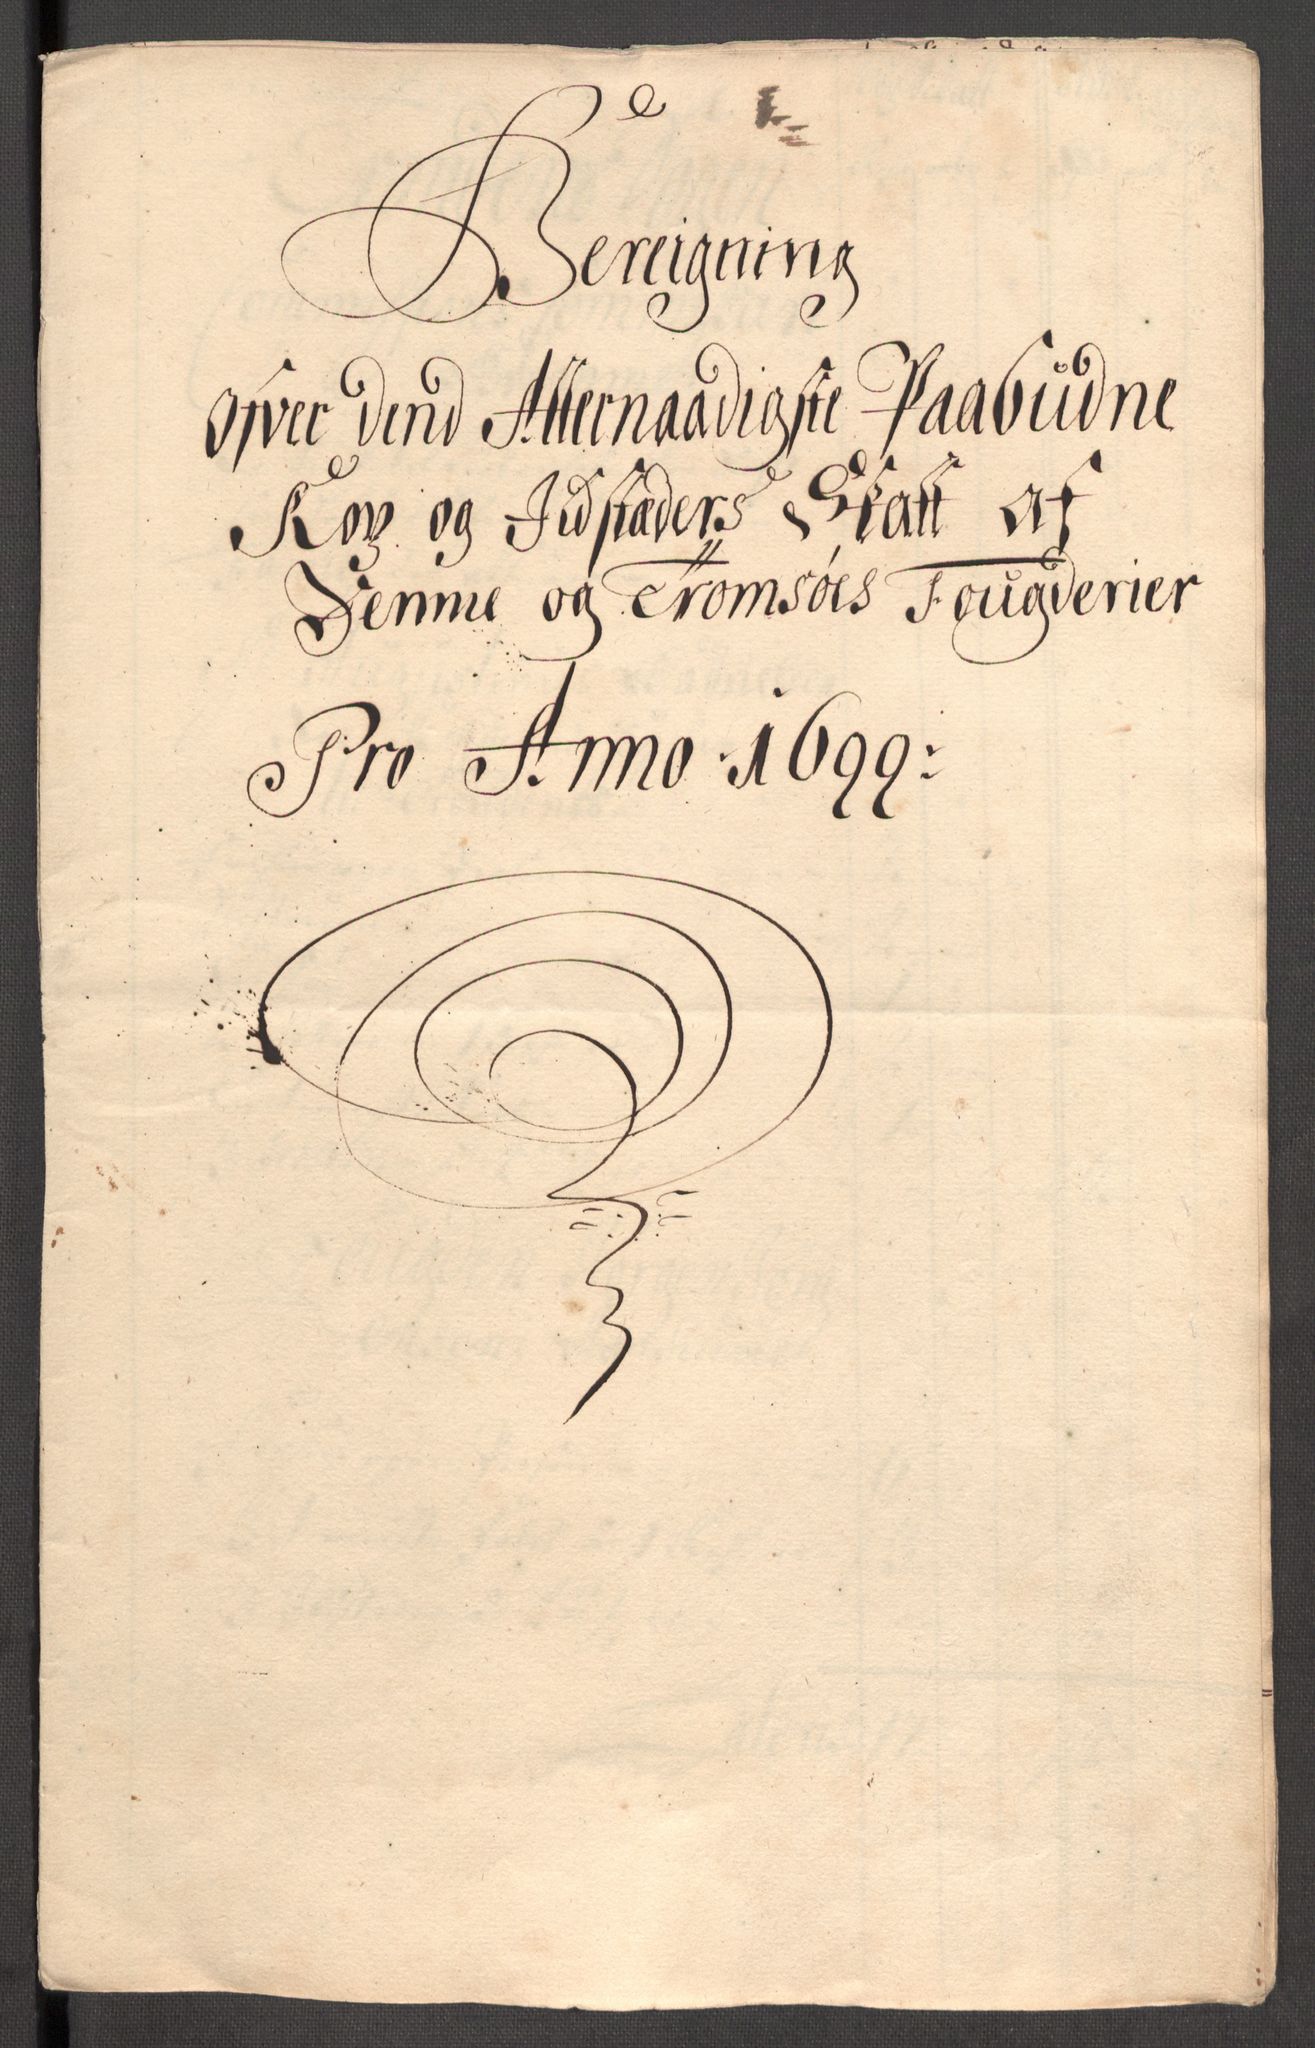 Bereigning
ofver dend Allernaadigste Paabudne
Kop og Ildstæders Skatt af
Sennie og Tromsöes Fougderier
Pro Anno 1699: